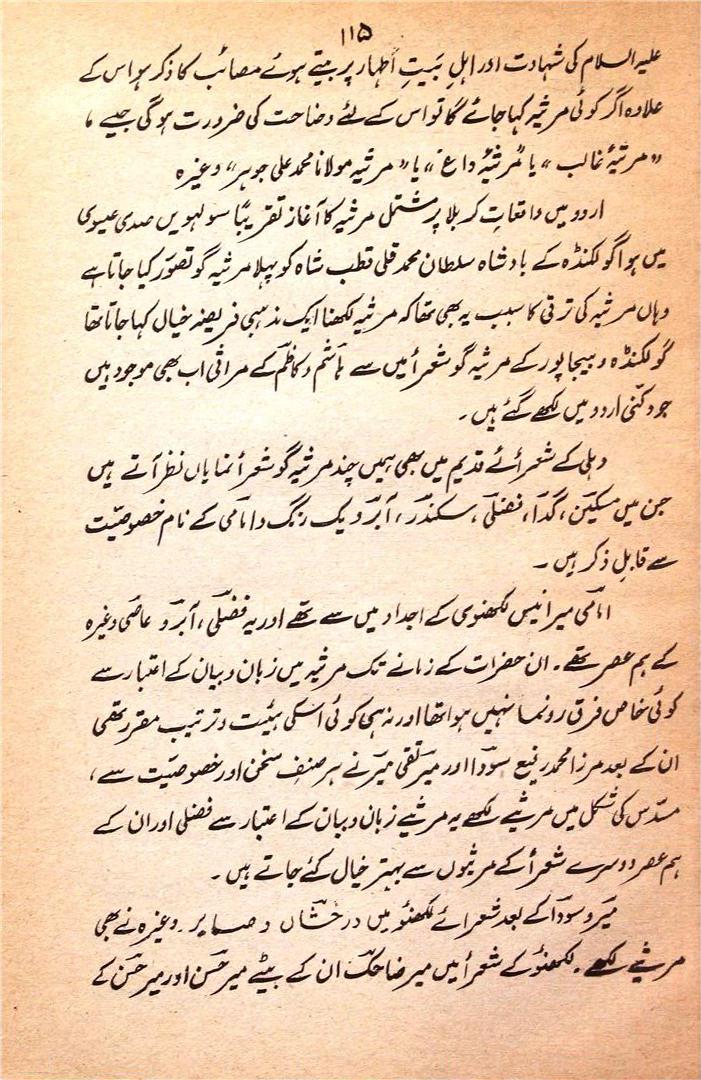 ۱۱۵
علیہ السلام کی شہادت اور اہلِ بَیتِ اَطہار پر بیتے ہوئے مصائب کا ذکر ہو اس کے
علاوہ اگر کوئی مرثیہ کہا جائے گا تو اس کے لئے وضاحت کی ضرورت ہو گی جیسے ،
”مرثیۂ غالب“ یا ”مرثیۂ داغ“ یا ”مرثیہ مولانا محمد علی جوہر“ وغیرہ
اردو میں واقعاتِ کربلا پر مشتمل مرثیہ کا آغاز تقریباً سولہویں صدی عیسوی
میں ہوا گولکنڈہ کے بادشاہ سلطان محمد قلی قطب شاہ کو پہلا مرثیہ گو تصوّر کیا جاتا ہے
وہاں مرثیہ کی ترقی کا سبب یہ بھی تھا کہ مرثیہ لکھنا ایک مذہبی فریضہ خیال کہا جاتا تھا
گولکنڈہ و بیجاپور کے مرثیہ گو شعرأ میں سے ہاشم و کاظم کے مراثی اب بھی موجود ہیں
جو دکنی اردو میں لکھے گئے ہیں ۔
دہلی کے شعرائے قدیم میں بھی ہمیں چند مرثیہ گو شعرأ نمایاں نظر آتے ہیں
جن میں مسکین، گدا، فضلی، سکندر، آبرو یک رنگ و امامی کے نام خصوصیّت
سے قابلِ ذکر ہیں ۔
امامی میر انیس لکھنوی کے اجداد میں سے تھے اور یہ فضلی، آبرو عاصی وغیرہ
کے ہم عصر تھے۔ ان حضرات کے زمانے تک مرثیہ میں زبان و بیان کے اعتبار سے
کوئی خاص فرق رونما نہیں ہوا تھا اور نہ ہی کوئی اسکی ہیئت و ترتیب مقرر تھی
ان کے بعد مرزا محمد رفیع سودا اور میر تقی میر نے ہر صنف سخن اور خصوصیّت سے،
مسدّس کی شکل میں مرثیے لکھے یہ مرثیے زبان و بیان کے اعتبار سے فضلی اور ان کے
ہم عصر دوسرے شعرأ کے مرثیوں سے بہتر خیال کئے جاتے ہیں ۔
میر و سودا کے بعد شعرائے لکھنؤ میں درخشاں و صابر ۔ وغیرہ نے بھی
مرثیے لکھے ۔ لکھنؤ کے شعرأ میں میر ضاحک ان کے بیٹے میر حسن اور میر حسن کے